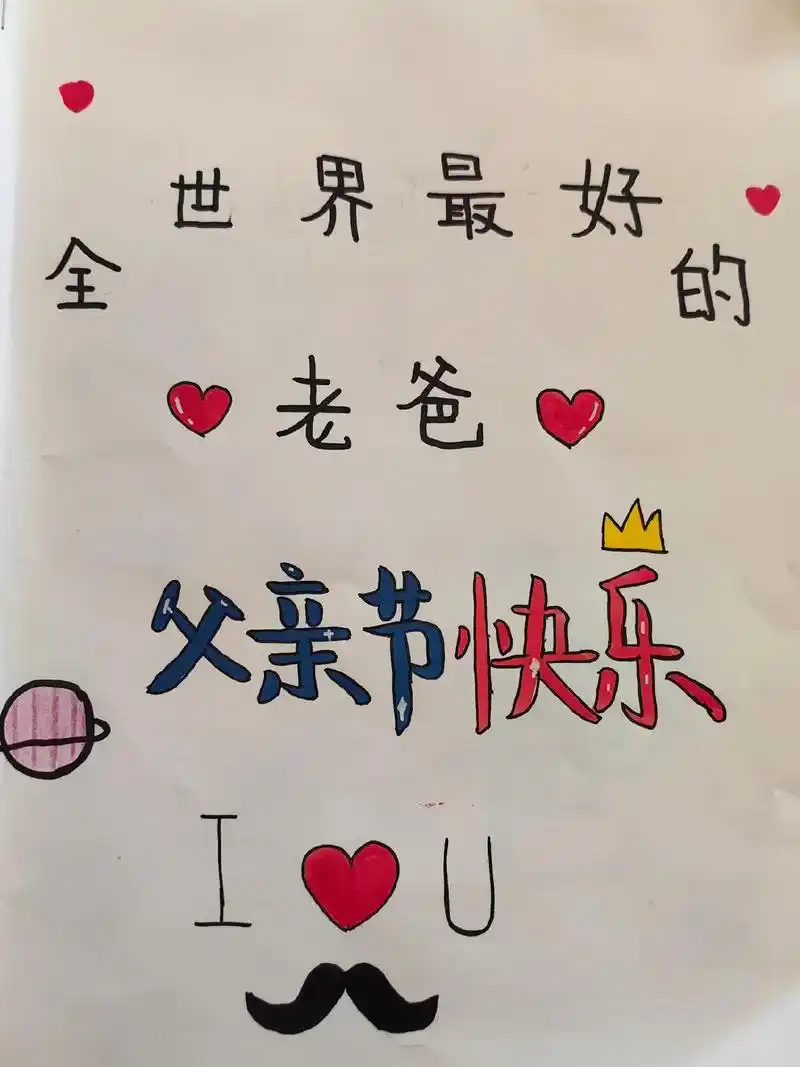 全世界最好的
老爸
父亲节快乐
I ❤ U